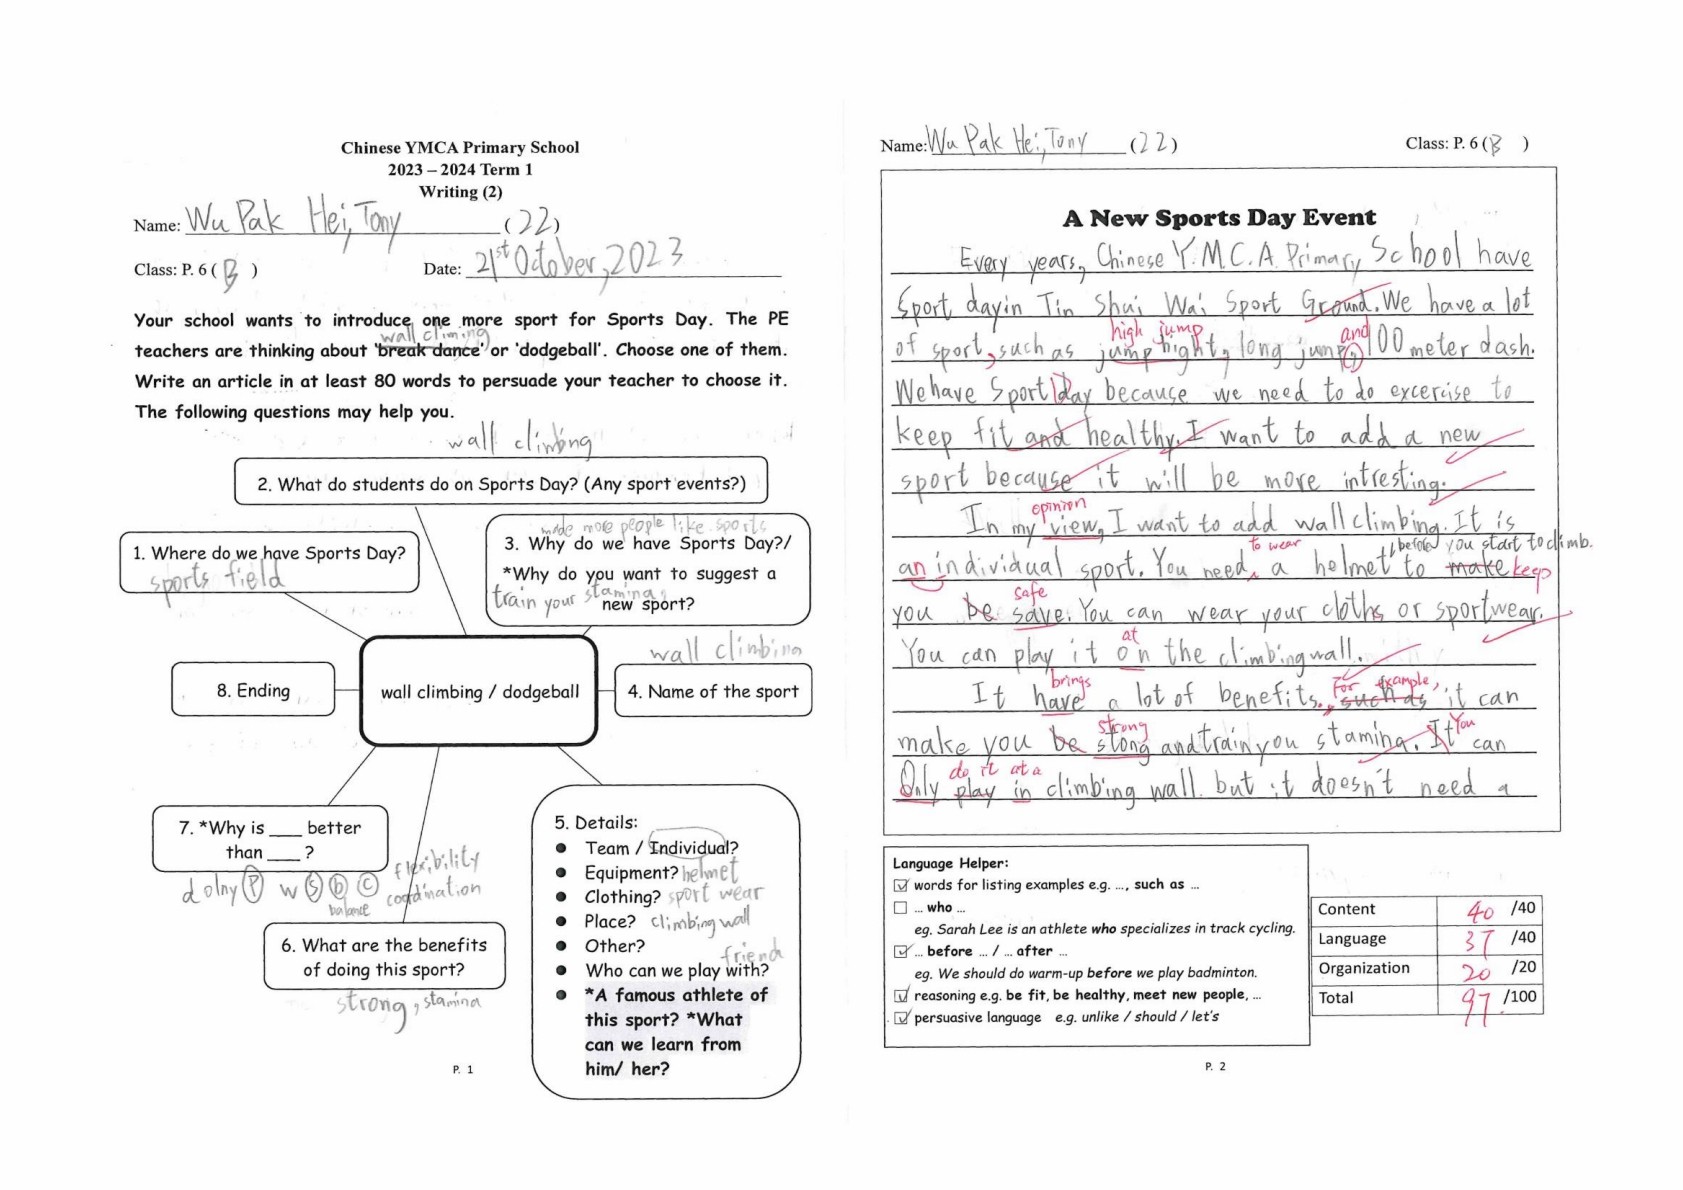 Chinese YMCA Primary School
2023 – 2024 Term 1
Writing (2)
Name: Wu Pak Hei, Tony (22)
Class: P. 6 ( B ) Date: 21st October, 2023
Your school wants to introduce one more sport for Sports Day. The PE
wall climing
teachers are thinking about 'break dance' or 'dodgeball'. Choose one of them.
Write an article in at least 80 words to persuade your teacher to choose it.
The following questions may help you.
wall climbing
2. What do students do on Sports Day? (Any sport events?)
1. Where do we have Sports Day?
sports field
made more people like sports
3. Why do we have Sports Day?/
*Why do you want to suggest a
train your stamina,
new sport?
wall climbing
8. Ending
wall climbing / dodgeball
4. Name of the sport
7. *Why is ___ better
than ___ ?
flexibility
coordination
balance
6. What are the benefits
of doing this sport?
strong, stamina
5. Details:
Team / Individual?
Equipment? helmet
Clothing? sport wear
Place? climbing wall
Other?
friend
Who can we play with?
*A famous athlete of
this sport? *What
can we learn from
him/ her?
P. 1
Name: Wu Pak Hei, Tony (22) Class: P. 6 ( B )
A New Sports Day Event
Every years, Chinese Y.M.C.A. Primary School have
Sport day in Tin Shui Wai Sport Ground. We have a lot
high jump and
of sport, such as jump hight, long jump, 100 meter dash.
We have Sport day because we need to do excercise to
keep fit and healthy. I want to add a new
sport because it will be more intresting.
opinion
In my view, I want to add wall climbing. It is
to wear before you start to climb.
an individual sport. You need a helmet to make keep
safe
you be save. You can wear your cloths or sportwear.
at
You can play it on the climbing wall.
brings For example,
It have a lot of benefits, such as it can
strong You
make you be stong and train you stamina. It can
do it at a
Only play in climbing wall but it doesn't need a
Language Helper:
words for listing examples e.g. ..., such as ...
... who ...
eg. Sarah Lee is an athlete who specializes in track cycling.
... before ... / ... after ...
eg. We should do warm-up before we play badminton.
reasoning e.g. be fit, be healthy, meet new people, ...
persuasive language e.g. unlike / should / let's
Content 40 /40
Language 37 /40
Organization 20 /20
Total 97 /100
P. 2